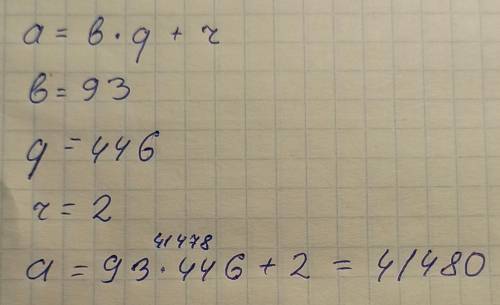 a = b · q + r
b = 93
q = 446
r = 2
41478
a = 93 · 446 + 2 = 41480